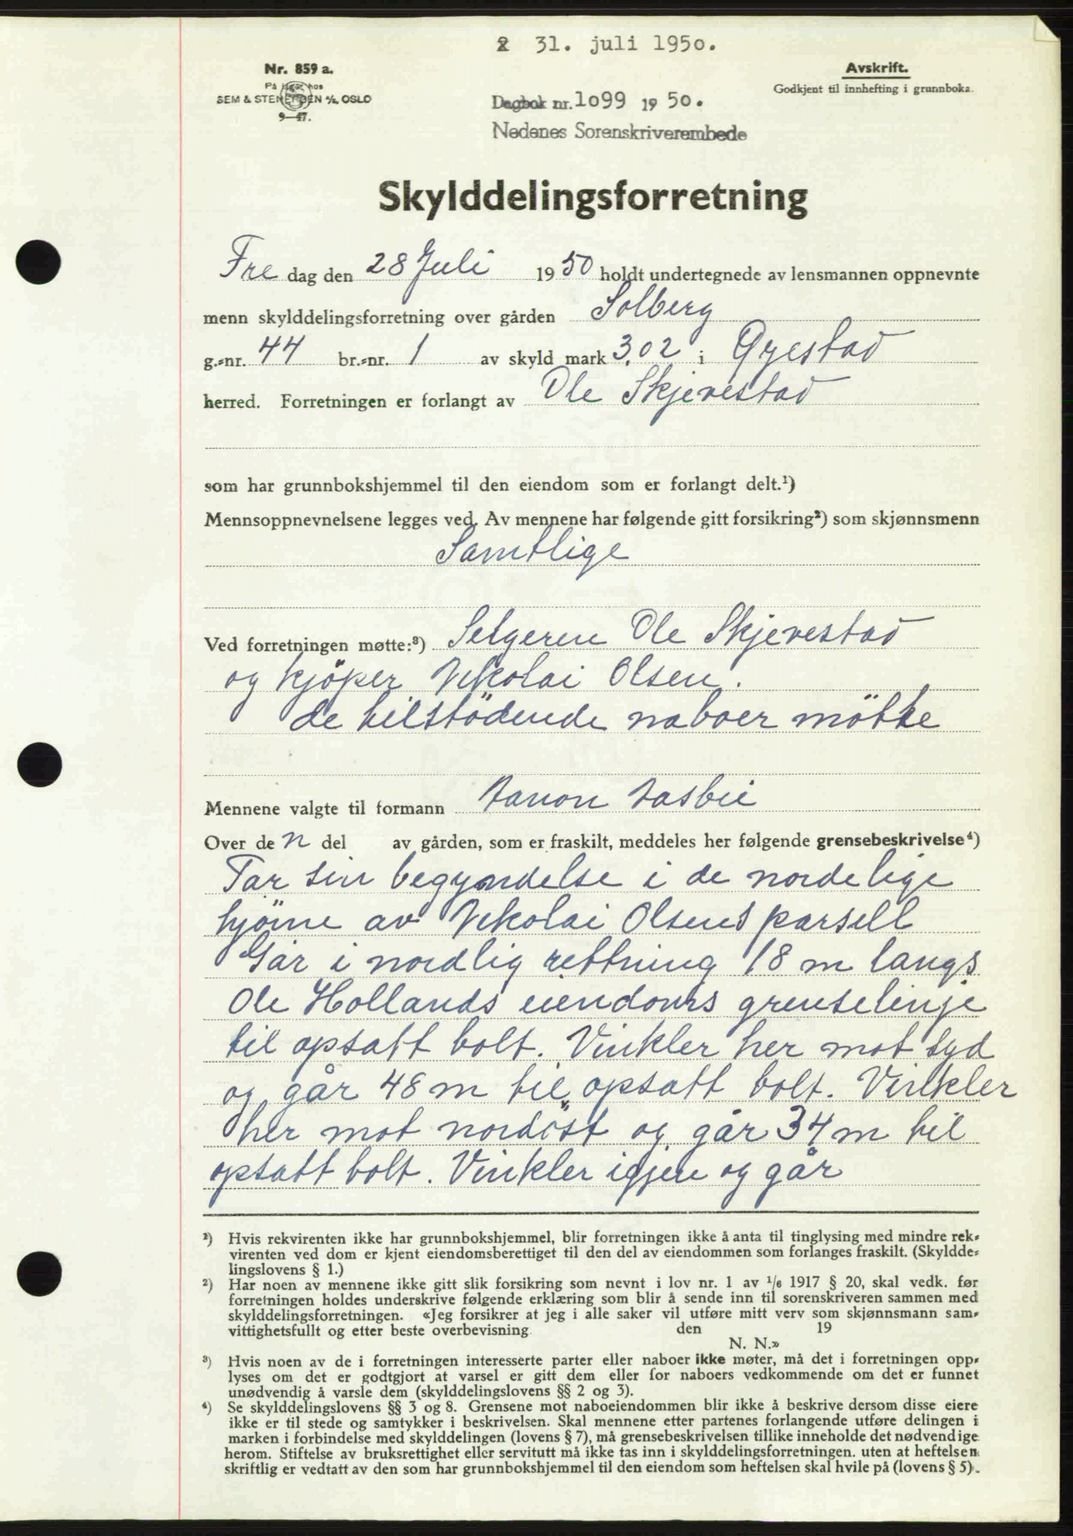 2 31. juli 1950.
Nr. 859 a.
På lager hos
SEM & STENERSEN A/S, OSLO
9—47.
Avskrift.
Godkjent til innhefting i grunnboka.
Dagbok nr. 1099 1950.
Nedenes Sorenskriverembede
Skylddelingsforretning
Fre dag den 28 Juli 1950 holdt undertegnede av lensmannen oppnevnte
menn skylddelingsforretning over gården Solberg
g.-nr. 44 br.-nr. 1 av skyld mark 3,02 i Øyestad
herred. Forretningen er forlangt av Ole Skjevestad
som har grunnbokshjemmel til den eiendom som er forlangt delt.¹)
Mennsoppnevnelsene legges ved. Av mennene har følgende gitt forsikring²) som skjønnsmenn
Samtlige
Ved forretningen møtte:³) Selgeren Ole Skjevestad
og kjöper Nikolai Olsen.
de tilstödende naboer mötte
Mennene valgte til formann Aanon Aasbie
Over de n del av gården, som er fraskilt, meddeles her følgende grensebeskrivelse⁴)
Tar sin begyndelse i de nordelige
hjörne av Nikolai Olsens parsell
Går i nordlig rettning 18 m langs
Ole Hollands eiendoms grenselinje
til opsatt bolt. Vinkler her mot syd
og går 48 m til opsatt bolt. Vinkler
her mot nordöst og går 34 m til
opsatt bolt. Vinkler igjen og går
¹) Hvis rekvirenten ikke har grunnbokshjemmel, blir forretningen ikke å anta til tinglysing med mindre rek-
virenten ved dom er kjent eiendomsberettiget til den del av eiendommen som forlanges fraskilt. (Skyldde-
lingslovens § 1.)
²) Har noen av mennene ikke gitt slik forsikring som nevnt i lov nr. 1 av 1/6 1917 § 20, skal vedk. før
forretningen holdes underskrive følgende erklæring som blir å sende inn til sorenskriveren sammen med
skylddelingsforretningen. «Jeg forsikrer at jeg i alle saker vil utføre mitt verv som skjønnsmann sam-
vittighetsfullt og etter beste overbevisning den 19
N. N.»
³) Hvis noen av de i forretningen interesserte parter eller naboer ikke møter, må det i forretningen opp-
lyses om det er godtgjort at varsel er gitt dem eller for naboers vedkommende om det er funnet
unødvendig å varsle dem (skylddelingslovens §§ 2 og 3).
⁴) Se skylddelingslovens §§ 3 og 8. Grensene mot naboeiendommen blir ikke å beskrive dersom disse eiere
ikke er til stede og samtykker i beskrivelsen. Skal mennene etter partenes forlangende utføre delingen i
marken i forbindelse med skylddelingen (lovens § 7), må grensebeskrivelsen tillike inneholde det nødvendige
herom. Stiftelse av bruksrettighet eller servitutt må ikke tas inn i skylddelingsforretningen, uten at heftelsen
skriftlig er vedtatt av den som har grunnbokshjemmel til den eiendom som heftelsen skal hvile på (lovens § 5).